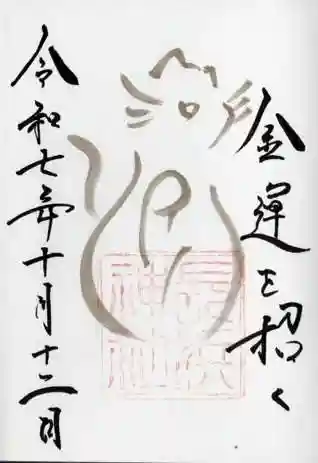 金運を招く
令和七年十月十二日